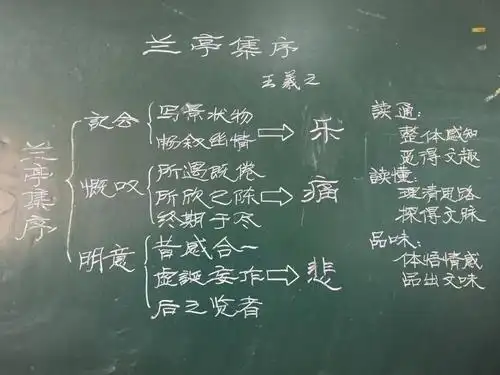 兰亭集序
王羲之
兰亭集序
记会
写景状物
畅叙幽情
乐
慨叹
所遇既倦
所欣已陈
终期于尽
痛
明意
昔感合一
虚诞妄作
后之览者
悲
读通:
整体感知
觅得文趣
读懂:
理清思路
探得文脉
品味:
体悟情感
品出文味